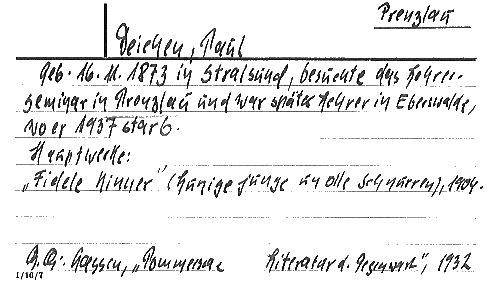 Prenzlau
Deichen, Paul
Geb. 16. 11. 1873 in Stralsund, besuchte das Lehrer-
seminar in Prenzlau und war später Lehrer in Eberswalde,
wo er 1937 starb.
Hauptwerke:
„Fidele Kinner" (lunige junge un olle Schnurren), 1904.
"Pommersche Literatur d. Gegenwart", 1932
1/10/7